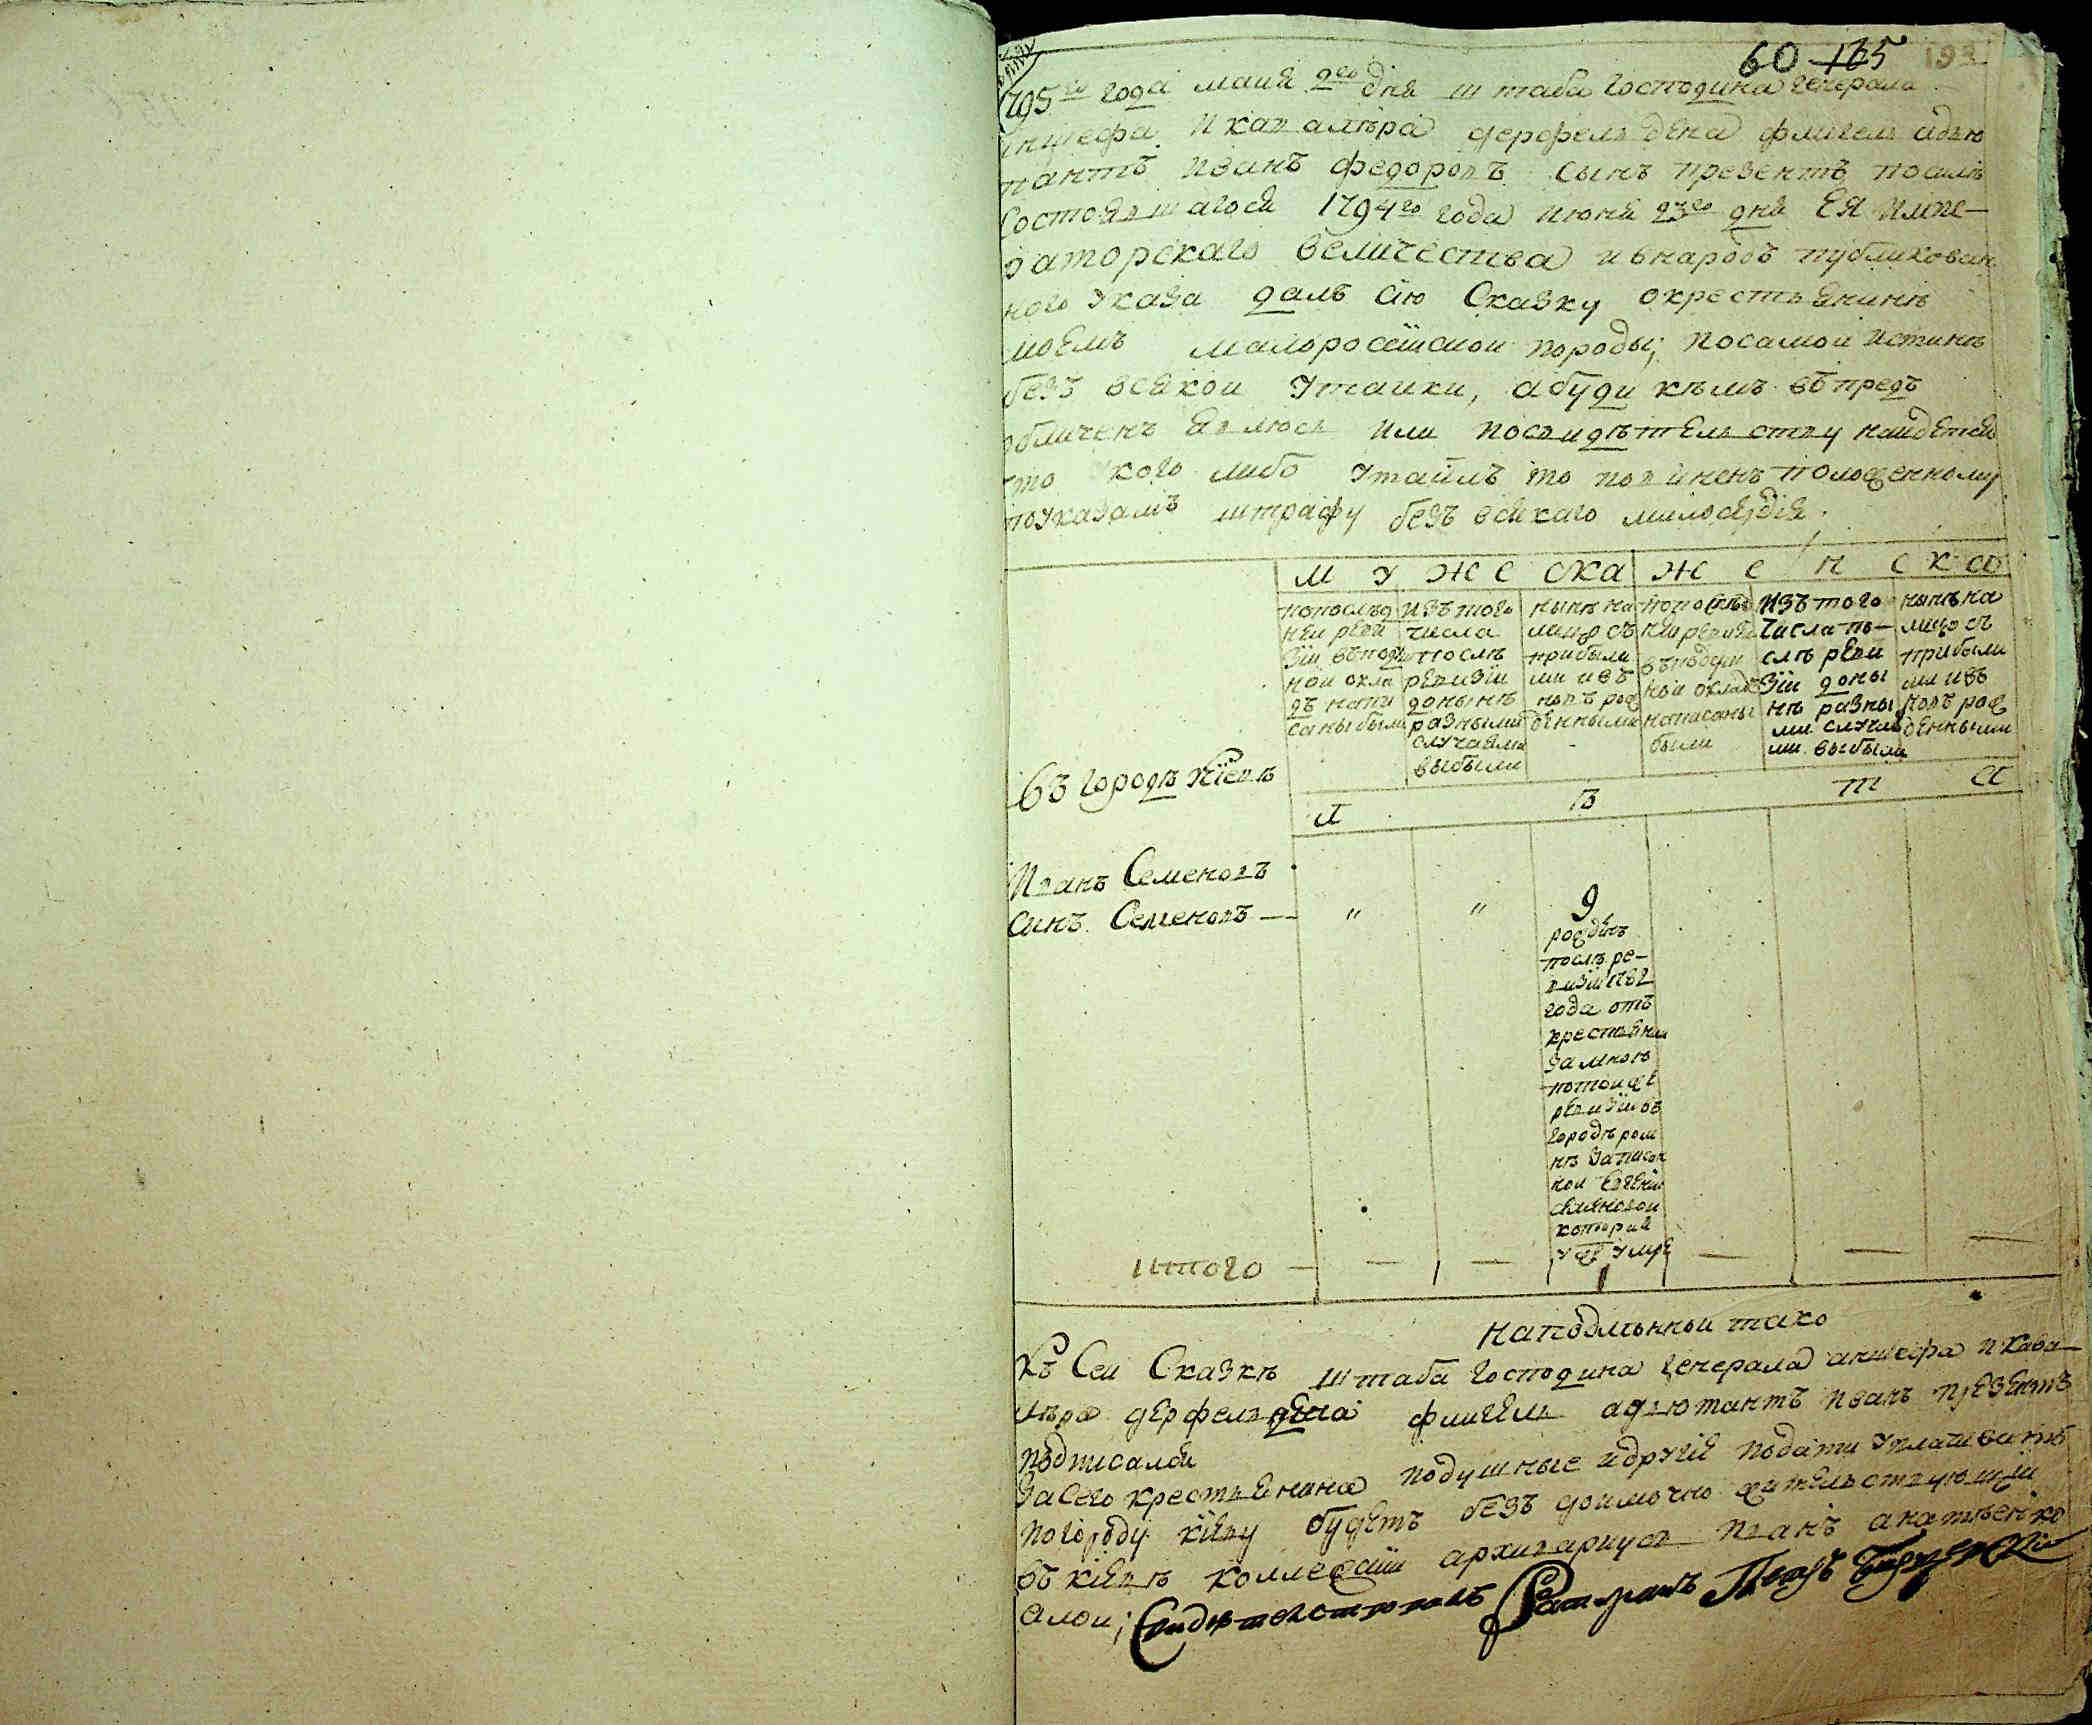 60 165 193
1795го года маия 9го дня штаба Господина генерала
аншефа и кавалѣра дерфельдена флигель адъю
тантъ Иванъ федоровъ сынъ презентъ посилѣ
состоявшагося 1794го года июня 23го дня ЕЯ Импе-
раторскаго величества ивнародъ публикован
ного указа далъ сію Сказку окрестьянинѣ
моемъ малоросіиской породы, посамой истинѣ
безъ всякои утаики, абуди кѣмъ въпредъ
обличенъ явлюсь или посвидѣтельству наидется
что укого либо утаилъ то повиненъ положенному
поуказамъ штрафу безъ всякаго милосердія.
мужеска женска
попослѣд неи реви зіи въподуш нои окла дъ напи саны были
изътого числа послѣ ревизіи донынѣ разными случаями выбыли
нынѣ на лицо съ прибыли ми ивъ новъ рож денными
попослѣд неи ревизіи въподуш нои окладъ написаны были
Изътого числа по- слѣ реви зіи доны нѣ разны ми случая ми выбыли
нынѣ на лицо съ прибыли ми ивъ новъ рож денными
въ городѣ Кіевѣ
л ѣ т а
Иванъ Семеновъ
синъ Семеновъ — " " 9
рожденъ
послѣ ре-
визіи 1782
года отъ
крестьянки
замною
потои же
ревизіи въ
городѣ ром
нѣ записан
нои Евгеніи
которая
уже умре
итого — — — 1 — — —
наподлинной тако
Къ Сеи Сказкѣ штаба Господина генерала аншефа икава-
лѣра дерфельдена флигель адъютантъ Иванъ презентъ
подписался
Засего крестьянина подушные идругія подати уплачивать
погороду кіеву будетъ безъ доимочно жительствующіи
въ кіевѣ колежскіи архиваріусъ Иванъ
Свидетельствовалъ Ратманъ Петръ